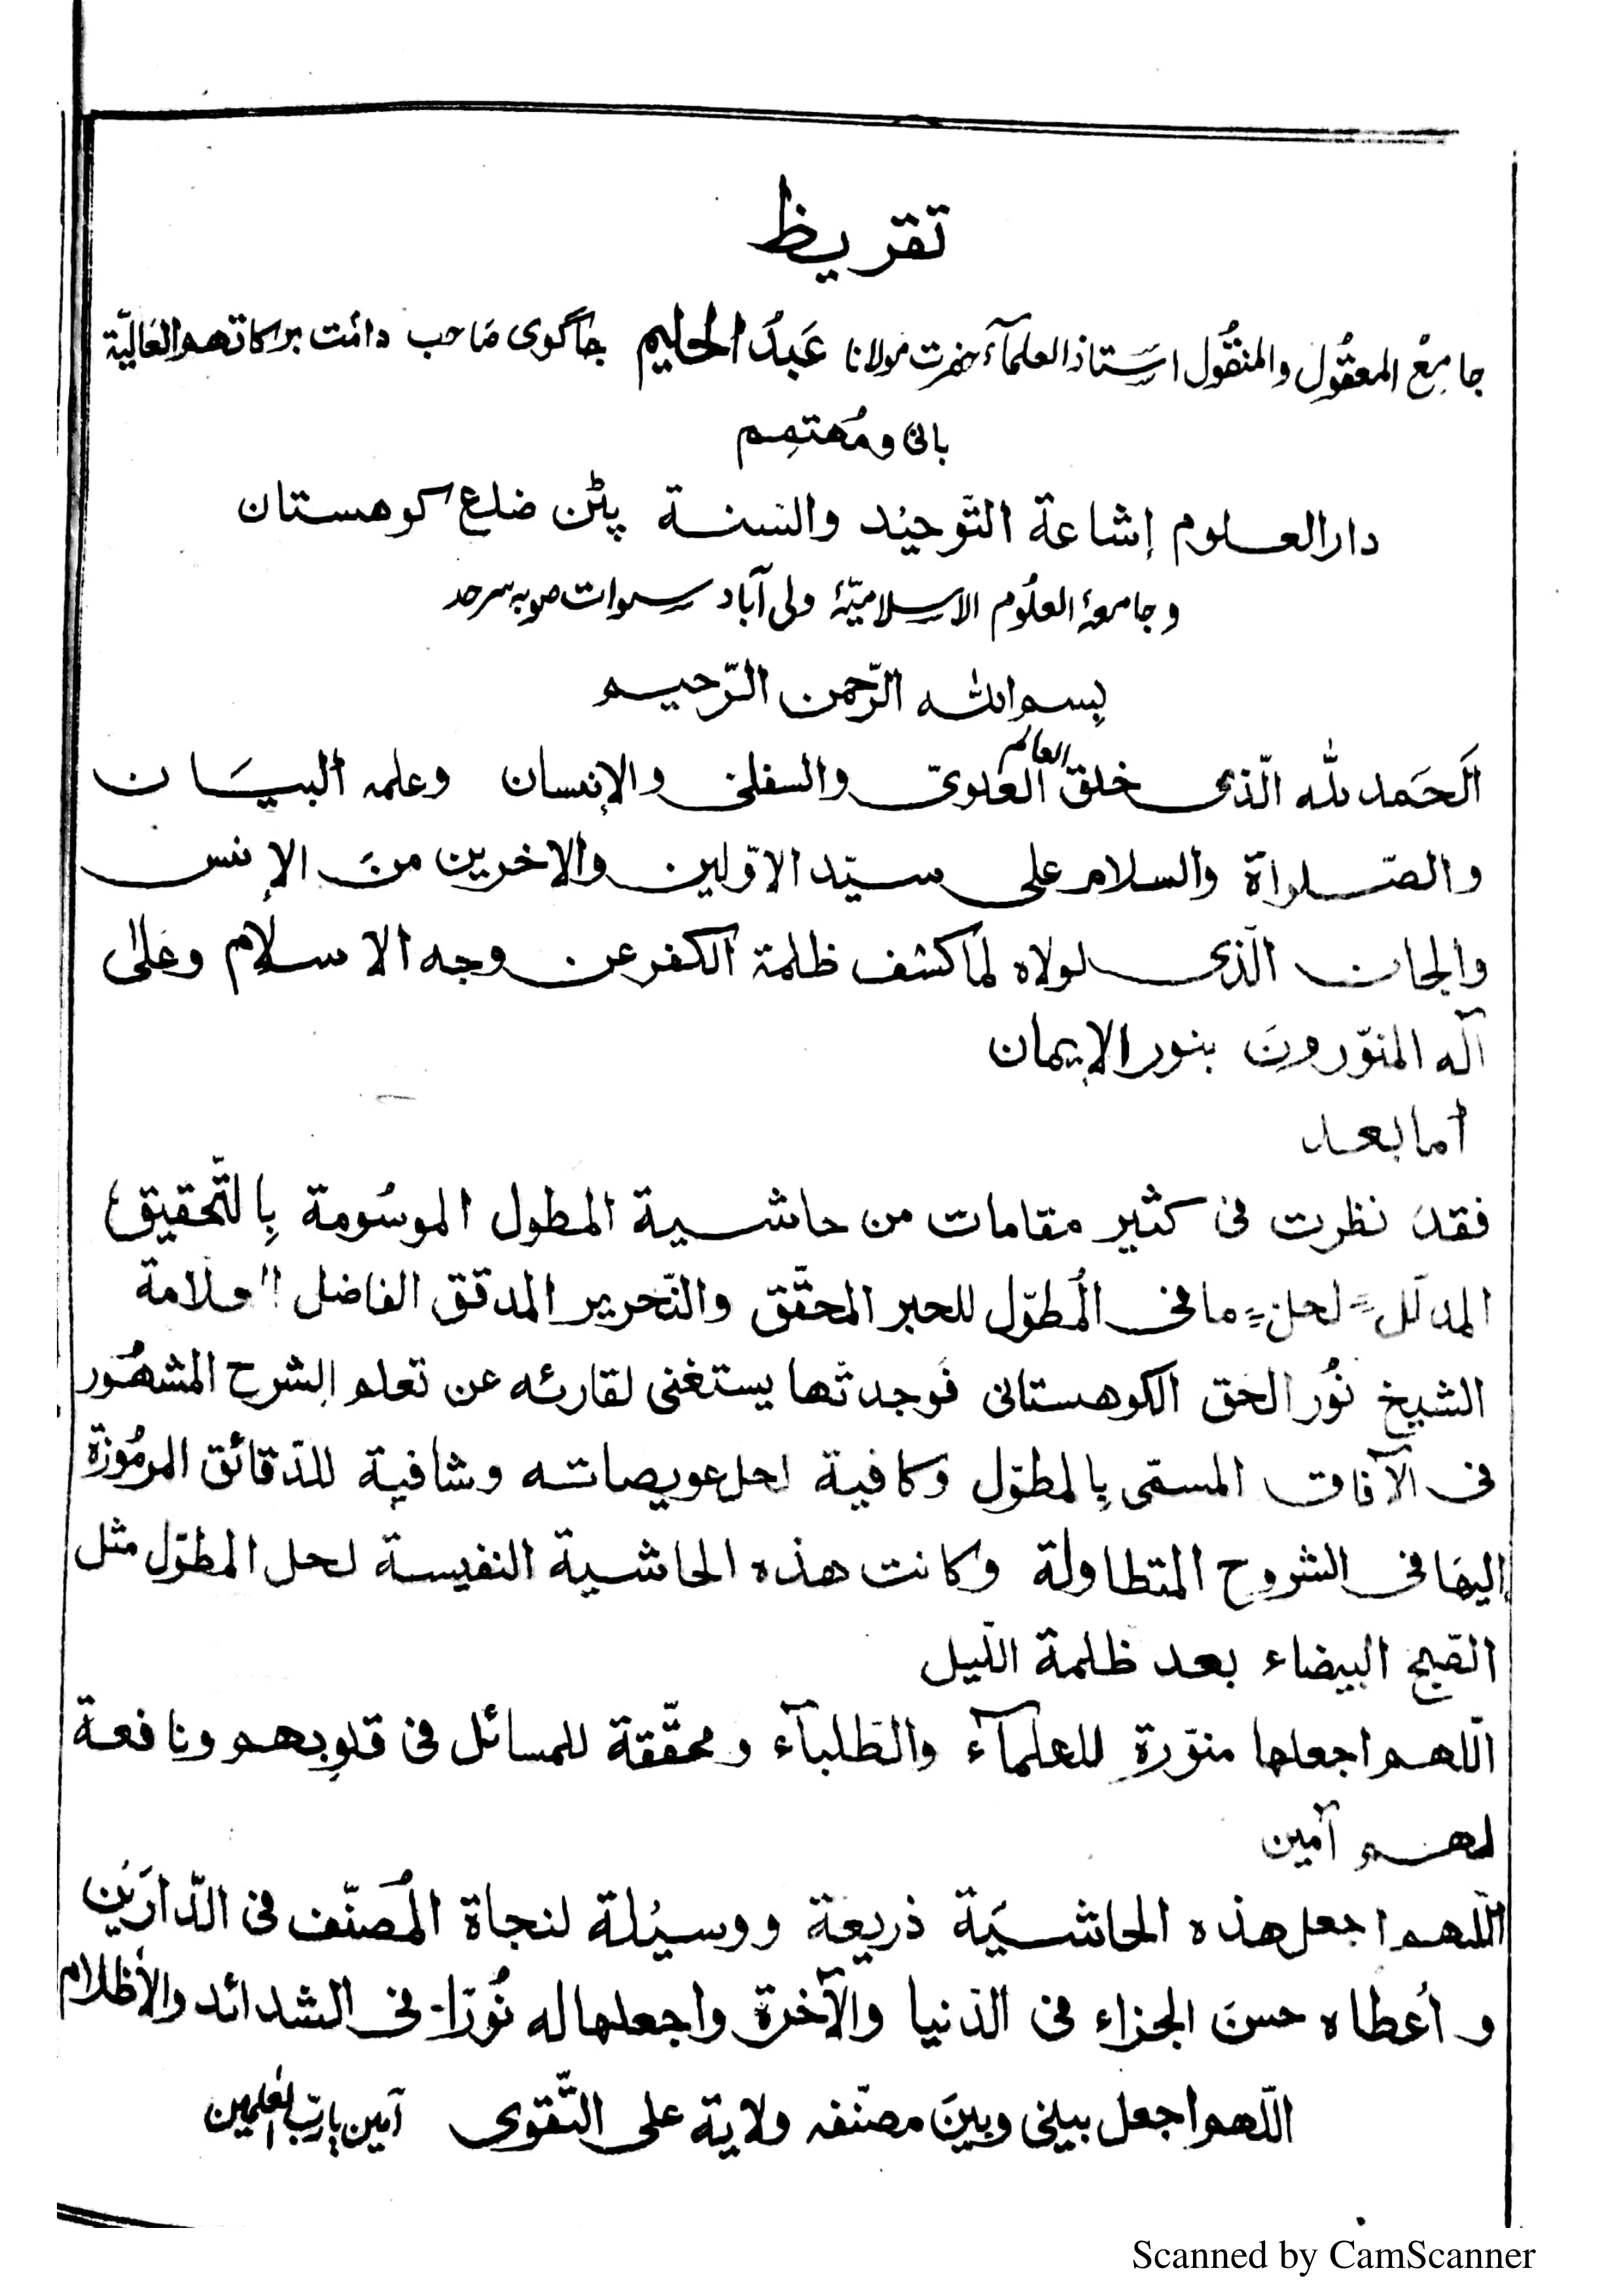 تقریظ
جامِعُ المعقُول والمنقُول استاذ العلمآء حضرت مولانا عَبدُ الحلیم جاگوی صَاحب دامَت برکاتهم العَالیّة
بانی ومُهتمِم
دار العلوم إشاعة التّوحیْد والسنة پٹن ضلع کوهستان
وجامعۂ العلُوم الاسلامیّۂ ولی آباد سوات صوبہ سرحد
بِسم الله الرّحمن الرّحیم
اَلحَمد لله الّذی خلق العالم العلویّ والسفلی والإنسان وعلمه البیَان
والصّلواة والسلام علی سیّد الاوّلین والاخرین منَ الإنس
والجان الّذی لولاه لما کشف ظلمة الکفر عن وجه الاسلام وعلیٰ
آله المنوّرونَ بنور الإیمان
أما بعد
فقد نظرت فی کثیر مقامات من حاشیة المطول الموسُومة بِالتّحقیق
المدلّل لحل ما فی المُطوّل للحبر المحقّق والنّحریر المدقق الفاضل العلامة
الشیخ نُور الحق الکوهستانی فوجدتها یستغنی لقارئه عن تعلم الشرح المشهُور
فی الآفاق المسمّی بِالمطوّل وکافیة لحل عویصاته وشافیة للدّقائق المرمُوزة
الیهَا فی الشروح المتطاولة وکانت هذه الحاشیة النفیسة لحل المطوّل مثل
الصّبح البیضاء بعد ظلمة اللّیل
اللّهم اجعلها منوّرة للعلمآء والطّلبآء ومحقّقة للمسائل فی قلوبِهم ونافعة
لهم آمین
اللّهم اجعل هذه الحاشیَة ذریعة ووسیْلة لنجاة المُصَنّف فی الدّارَیْن
وأعطاه حسنَ الجزاء فی الدّنیا والآخرة واجعلها له نُورًا فی الشدائد والأظلام
اللّهم اجعل بینی وبینَ مصنّفه ولایة علی التّقوی آمین یارَبّ العٰلمین
Scanned by CamScanner